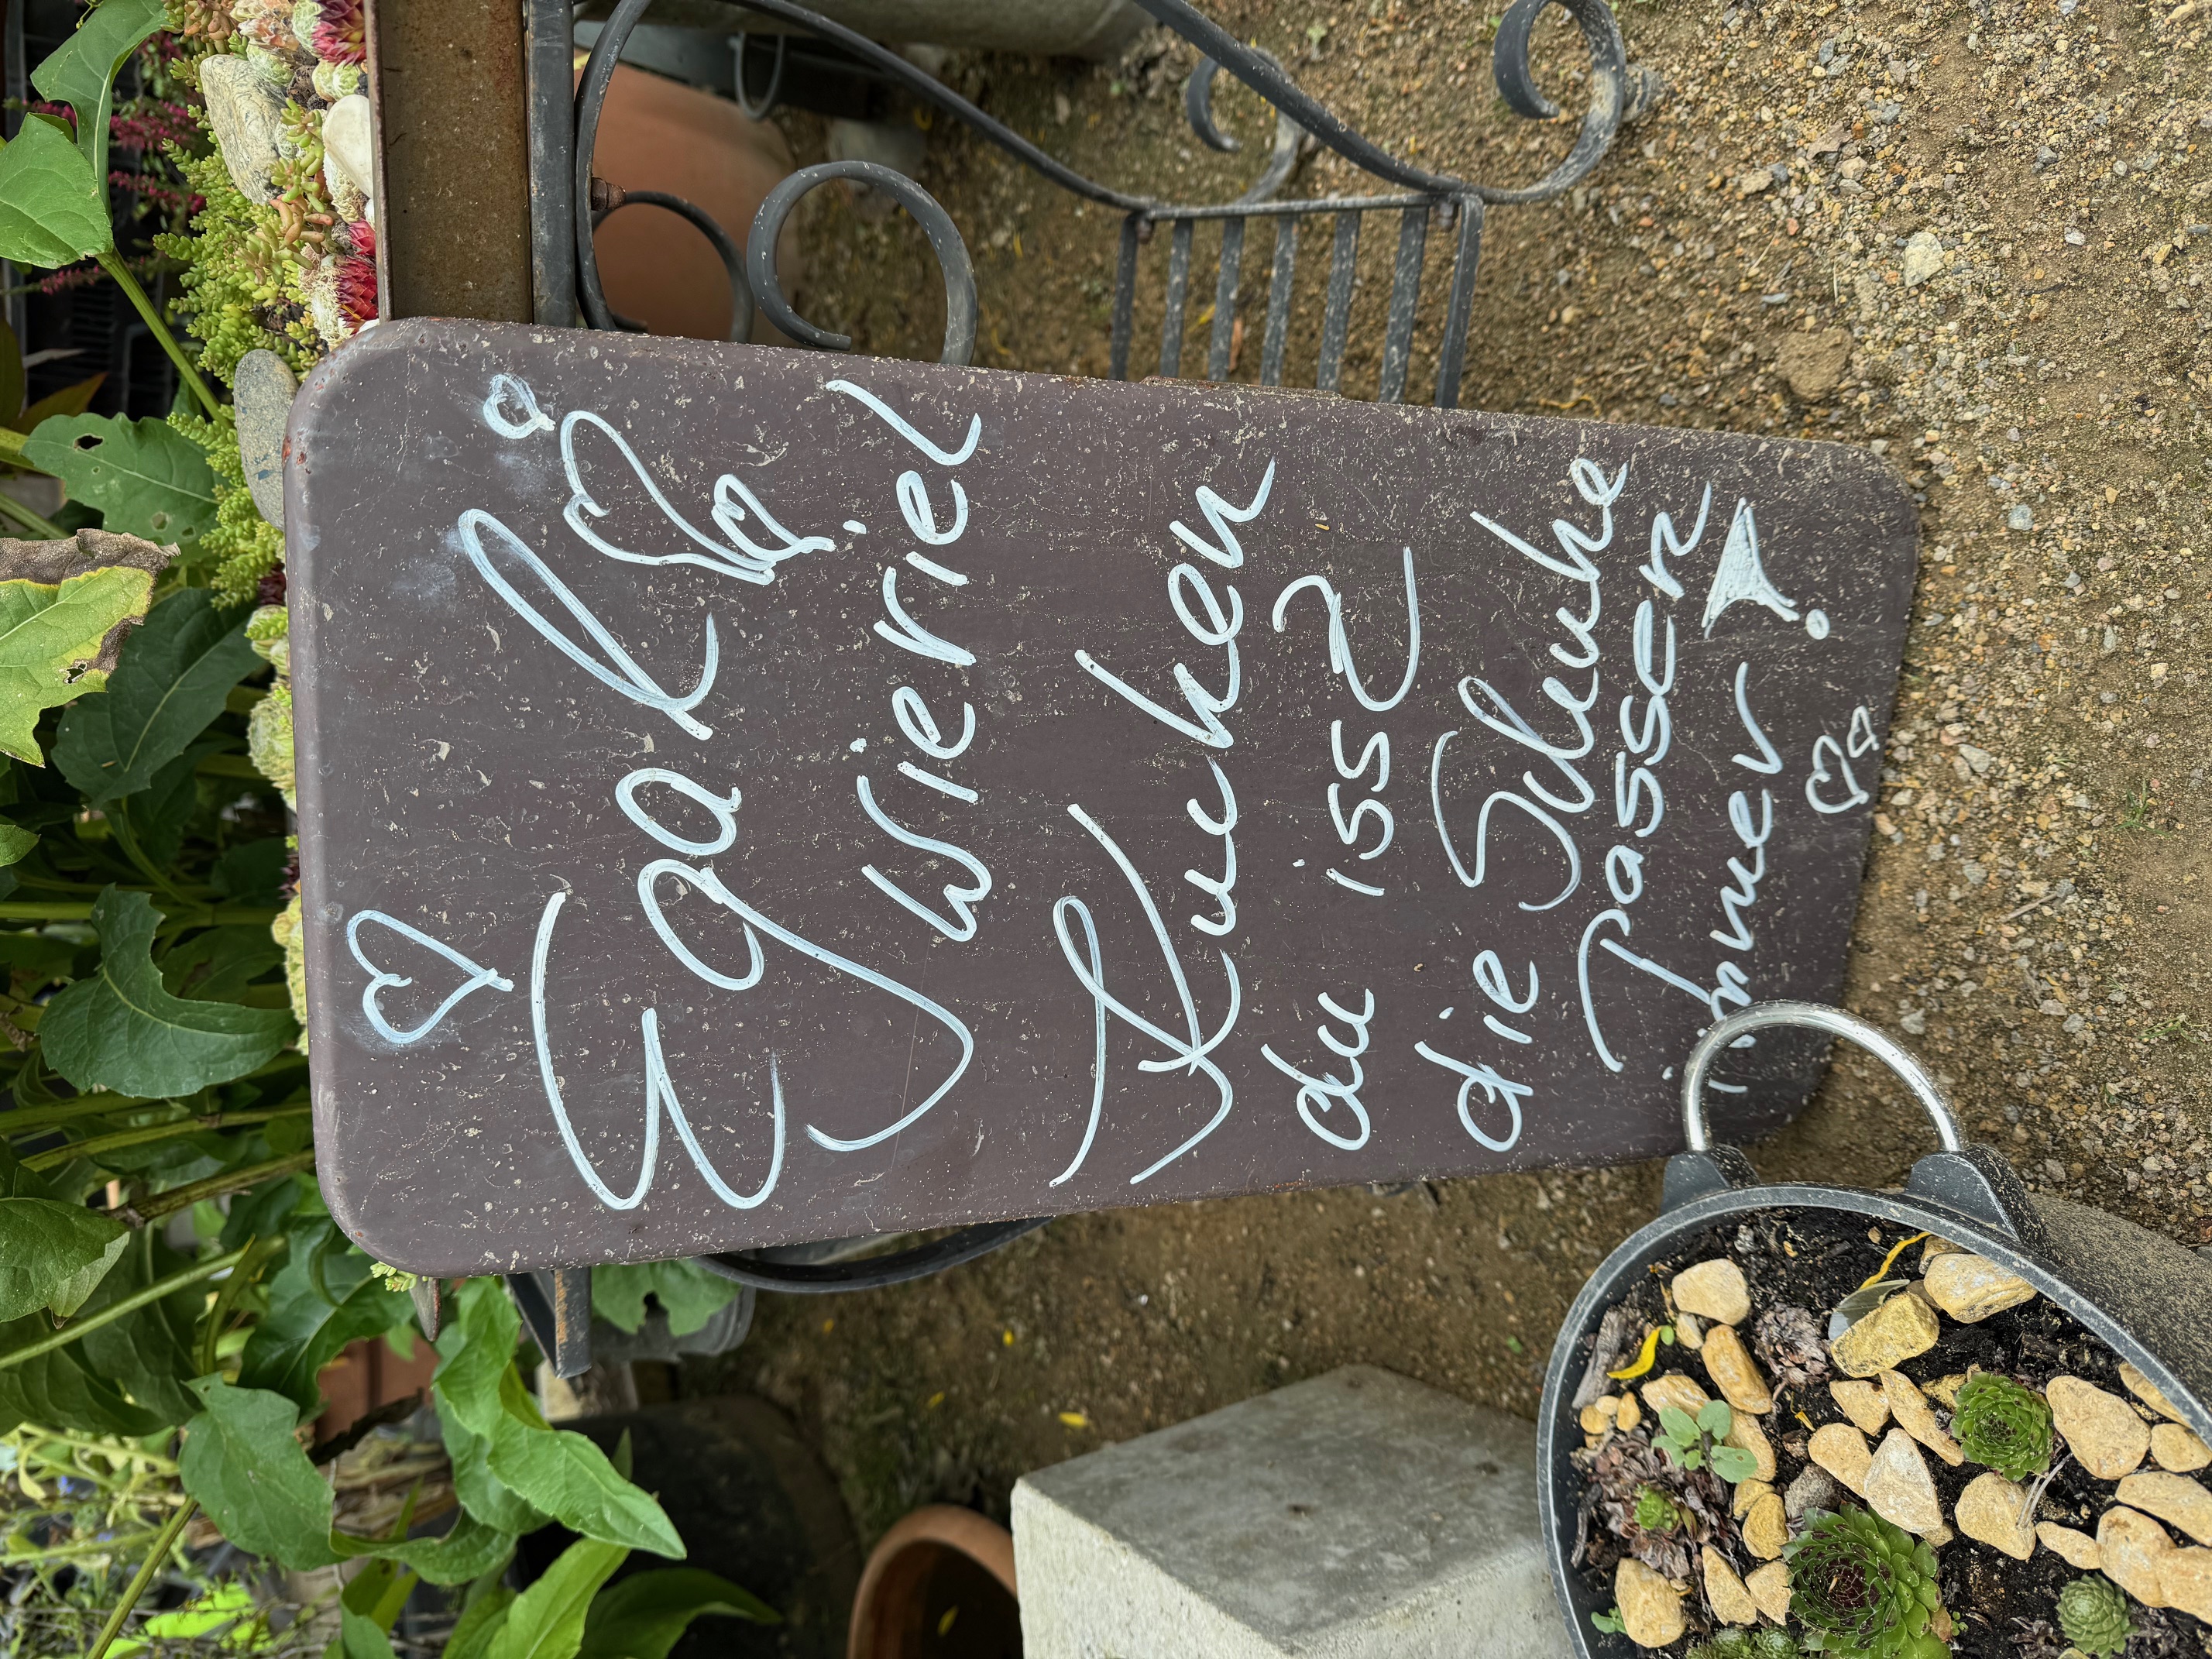 Egal
wieviel
Kuchen
du isst
die Schuhe
Passen
immer!